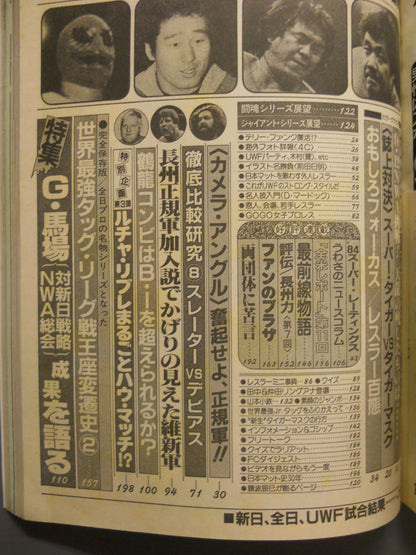 闘魂シリーズ展望……122
ジャイアント・シリーズ展望……124
〈誌上対決〉スーパー・タイガーVSタイガーマスク
おもしろフォーカス レスラー百態
34
●テリー・ファンク復活!?
●海外フォト詳報〈4C〉
●イラスト名勝負〈前田日明〉
●日本マットを賑わす外人レスラー
●これがUWFのストロング・スタイルだ
●名人技入門〈D・マードック〉
●GOGO女子プロレス……82
好評連載
84スーパー・レーティングス
うわさのニュースコラム
106
116
最前線物語
146
評伝/長州力〈第7回〉
152
ファンのプラザ
163
両団体に苦言
192
●レスラーミニ事典…86 ●クイズ……89
●田中&仲田リングアナ登場……128
●山本小鉄……132 ●素顔のジャンボ……134
●世界最強Jr.タッグをふりかえって…136
●“新生”タイガーマスクの行方……139
●インフォメーション&ゴシップ……142
●フリートーク
●クイズでラリアット
●FCダイジェスト
●ビデオを見ながらもう一度……189
●日本マット史30年……196
●藤波辰巳が創るページ……120
〈カメラ・アングル〉奮起せよ、正規軍!!
30
徹底比較研究⑧スレーターVSデビアス
71
長州正規軍加入説でかげりの見えた維新軍
94
鶴龍コンビはB・Iを超えられるか?
100
特別企画第3弾 ルチャ・リブレまるごとハウ・マッチ!?
198
●完全保存版・全日プロの名物シリーズとなった
世界最強タッグ・リーグ戦王座変遷史②
157
特集
G・馬場 対新日戦略 NWA総会 成果を語る
110
■新日、全日、UWF試合結果